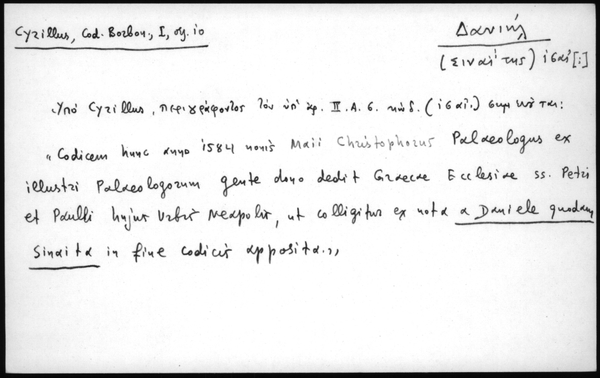 Cyrillus, Cod. Borbon., I, σγ. 10
Δανιήλ
(Σιναΐτης) ιςαι [;]
Ὑπὸ Cyrillus, περιγράφοντος τὸν ὑπ' ἀρ. II. A. 6. κώδ. (ιςαι.) σημειοῦται:
"Codicem hunc anno 1584 nonis Maii Christophorus Palaeologus ex
illustri Palaeologorum gente dono dedit Graecae Ecclesiae ss. Petri
et Paulli hujus Urbis Neapolis, ut colligitur ex nota a Daniele quodam
Sinaita in fine codicis apposita.,,